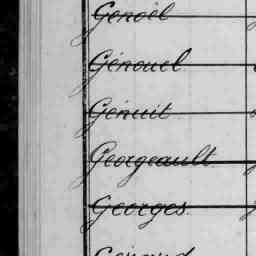 Genoël
Génouel
Génuit
Georgeault
Georges